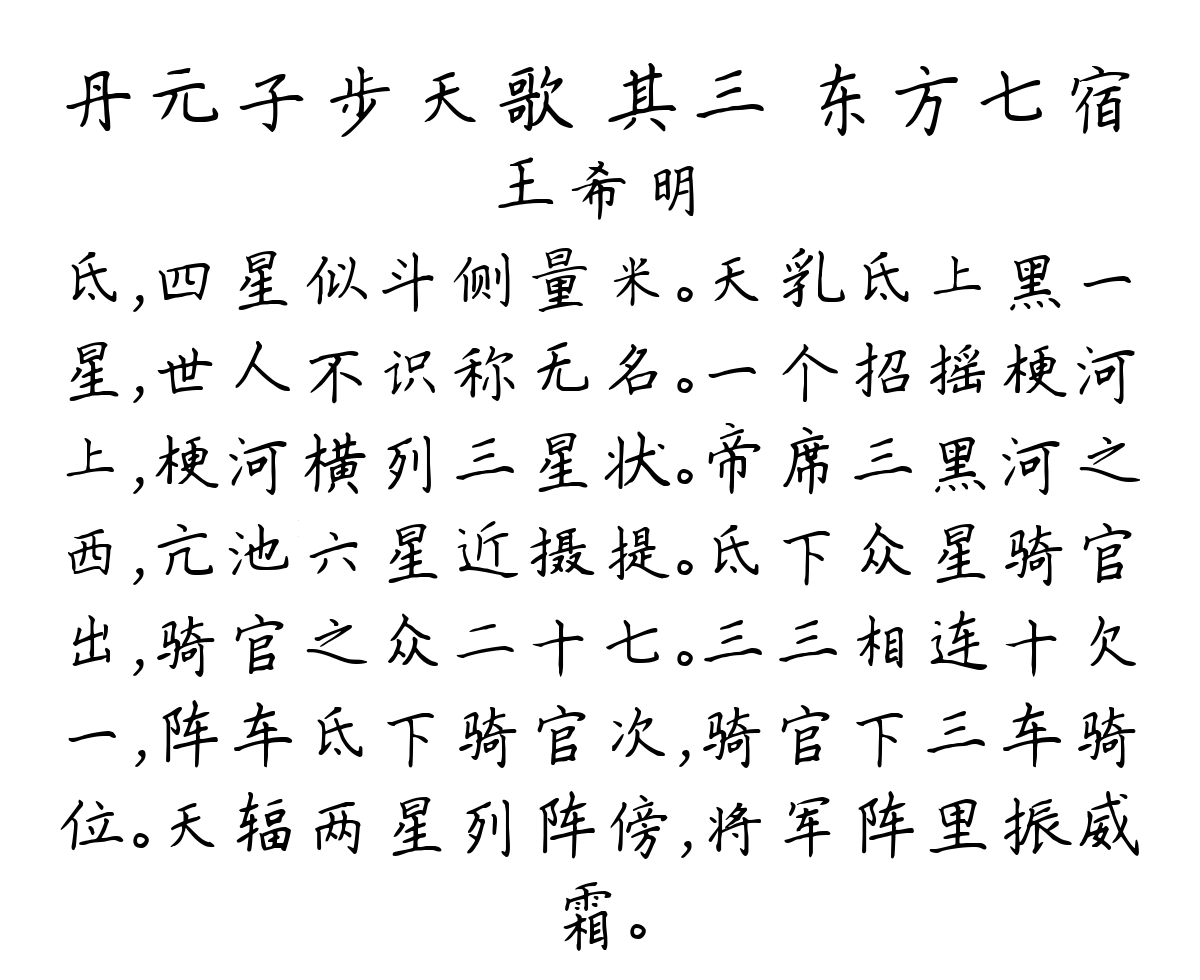 丹元子步天歌 其三 东方七宿
王希明
氐,四星似斗侧量米。天乳氐上黑一
星,世人不识称无名。一个招摇梗河
上,梗河横列三星状。帝席三黑河之
西,亢池六星近摄提。氐下众星骑官
出,骑官之众二十七。三三相连十欠
一,阵车氐下骑官次,骑官下三车骑
位。天辐两星列阵傍,将军阵里振威
霜。